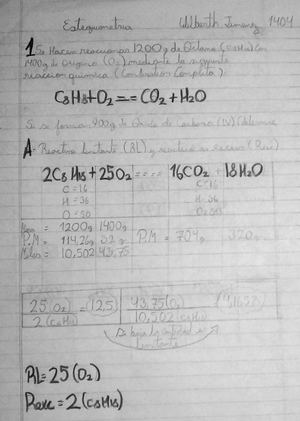 Estequiometria Wilberth Jimenez 1404
1 Se Hacen reaccionar 1200g de Octano (C8H18) Con
1400g de Oxigeno (O2) mediante la siguiente
reaccion quimica (Combustion Completa):
C8H18+O2 === CO2+H2O
Si se forman 900g de Oxido de Carbono (IV) Determine
A- Reactivo Limitante (RL) y reactivo en exceso (Rexc)
2C8H18 + 25O2 ==== 16CO2 + 18H2O
C=16 C=16
H=36 H=36
O=50 O=50
1200g 1400g
P.M= 114,26g 32g P.M= 704g 320g
Moles= 10,502 43,75
25(O2) = (12,5) 43,75(O2)
2(C8H18) 10,502(C8H18)
limitante
RL=25(O2)
Rexc=2(C8H18)